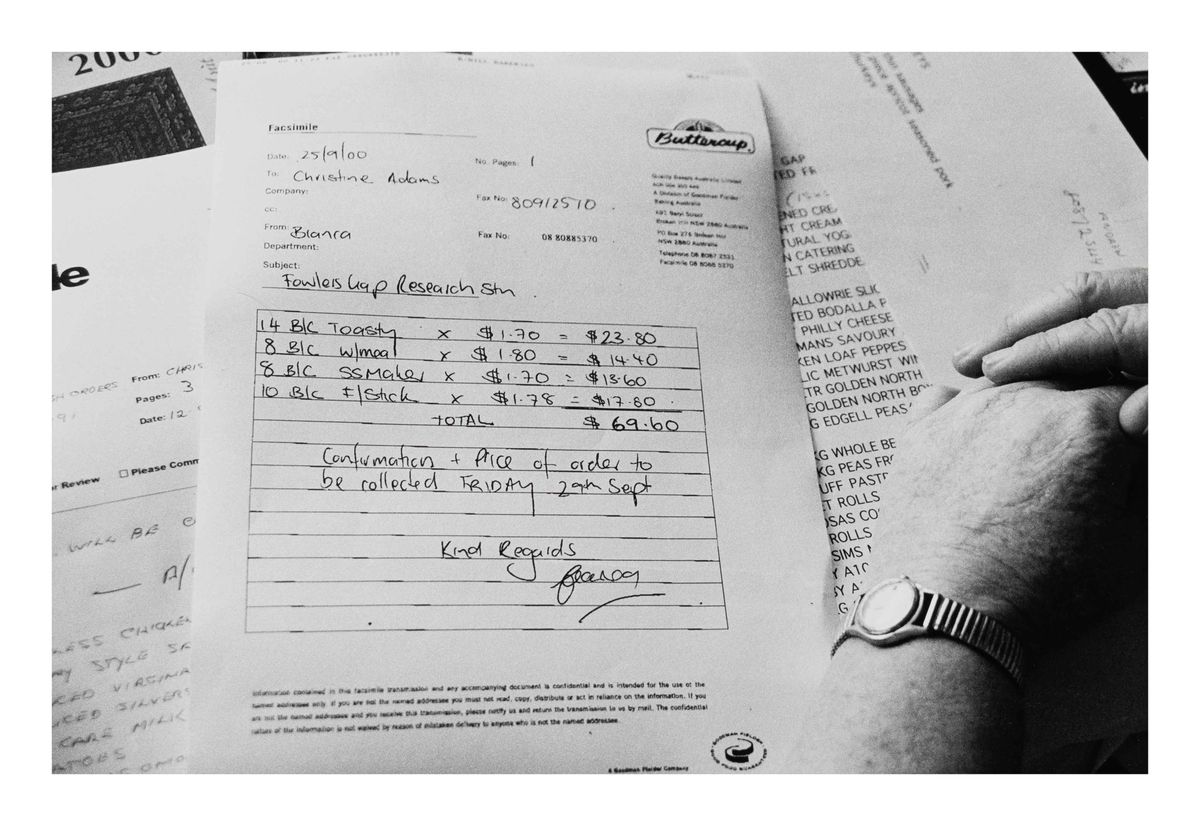 2000
Facsimile
Date: 25/9/00
No. Pages: 1
To: Christine Adams
Company:
Fax No: 80912510
cc:
From: Bianca
Fax No: 08 80885370
Department:
Subject:
Fowlers Gap Research Stn
Buttercup
Quality Bakers Australia Limited
A Division of Goodman Fielder
Baking Australia
Broken Hill NSW 2880 Australia
PO Box 276 Broken Hill
NSW 2880 Australia
Telephone 08 8087 2531
Facsimile 08 8088 5370
14 B/C Toasty x $1.70 = $23.80
8 B/C w/meal x $1.80 = $14.40
8 B/C SSMaker x $1.70 = $13.60
10 B/C F/Stick x $1.78 = $17.80
TOTAL $69.60
Confirmation + Price of order to
be collected FRIDAY 29th Sept
Kind Regards
Bianca
Information contained in this facsimile transmission and any accompanying document is confidential and is intended for the use of the
named addressee only. If you are not the named addressee you must not read, copy, distribute or act in reliance on the information. If you
are not the named addressee and you receive this transmission, please notify us and return the transmission to us by mail. The confidential
nature of the information is not waived by reason of mistaken delivery to anyone who is not the named addressee.
A Goodman Fielder Company
GOODMAN FIELDER
le
ORDERS From: CHRIS
Pages: 3
Date: 12
Review Please Comm
WILL BE
A/
LESS CHICKEN
STYLE
VIRGINIA
SILVER
CARE MILK
seasoned pork
sausages
GAP
ED FR
NED CRE
HT CREAM
TURAL YOG
N CATERING
LT SHREDDE
ALLOWRIE SLIC
TED BODALLA P
PHILLY CHEESE
MANS SAVOURY
KEN LOAF PEPPES
LIC METWURST WIN
TR GOLDEN NORTH
GOLDEN NORTH BO
G EDGELL PEAS
KG WHOLE BE
KG PEAS FR
UFF PAST
T ROLLS
SAS CO
ROLLS
SIMS